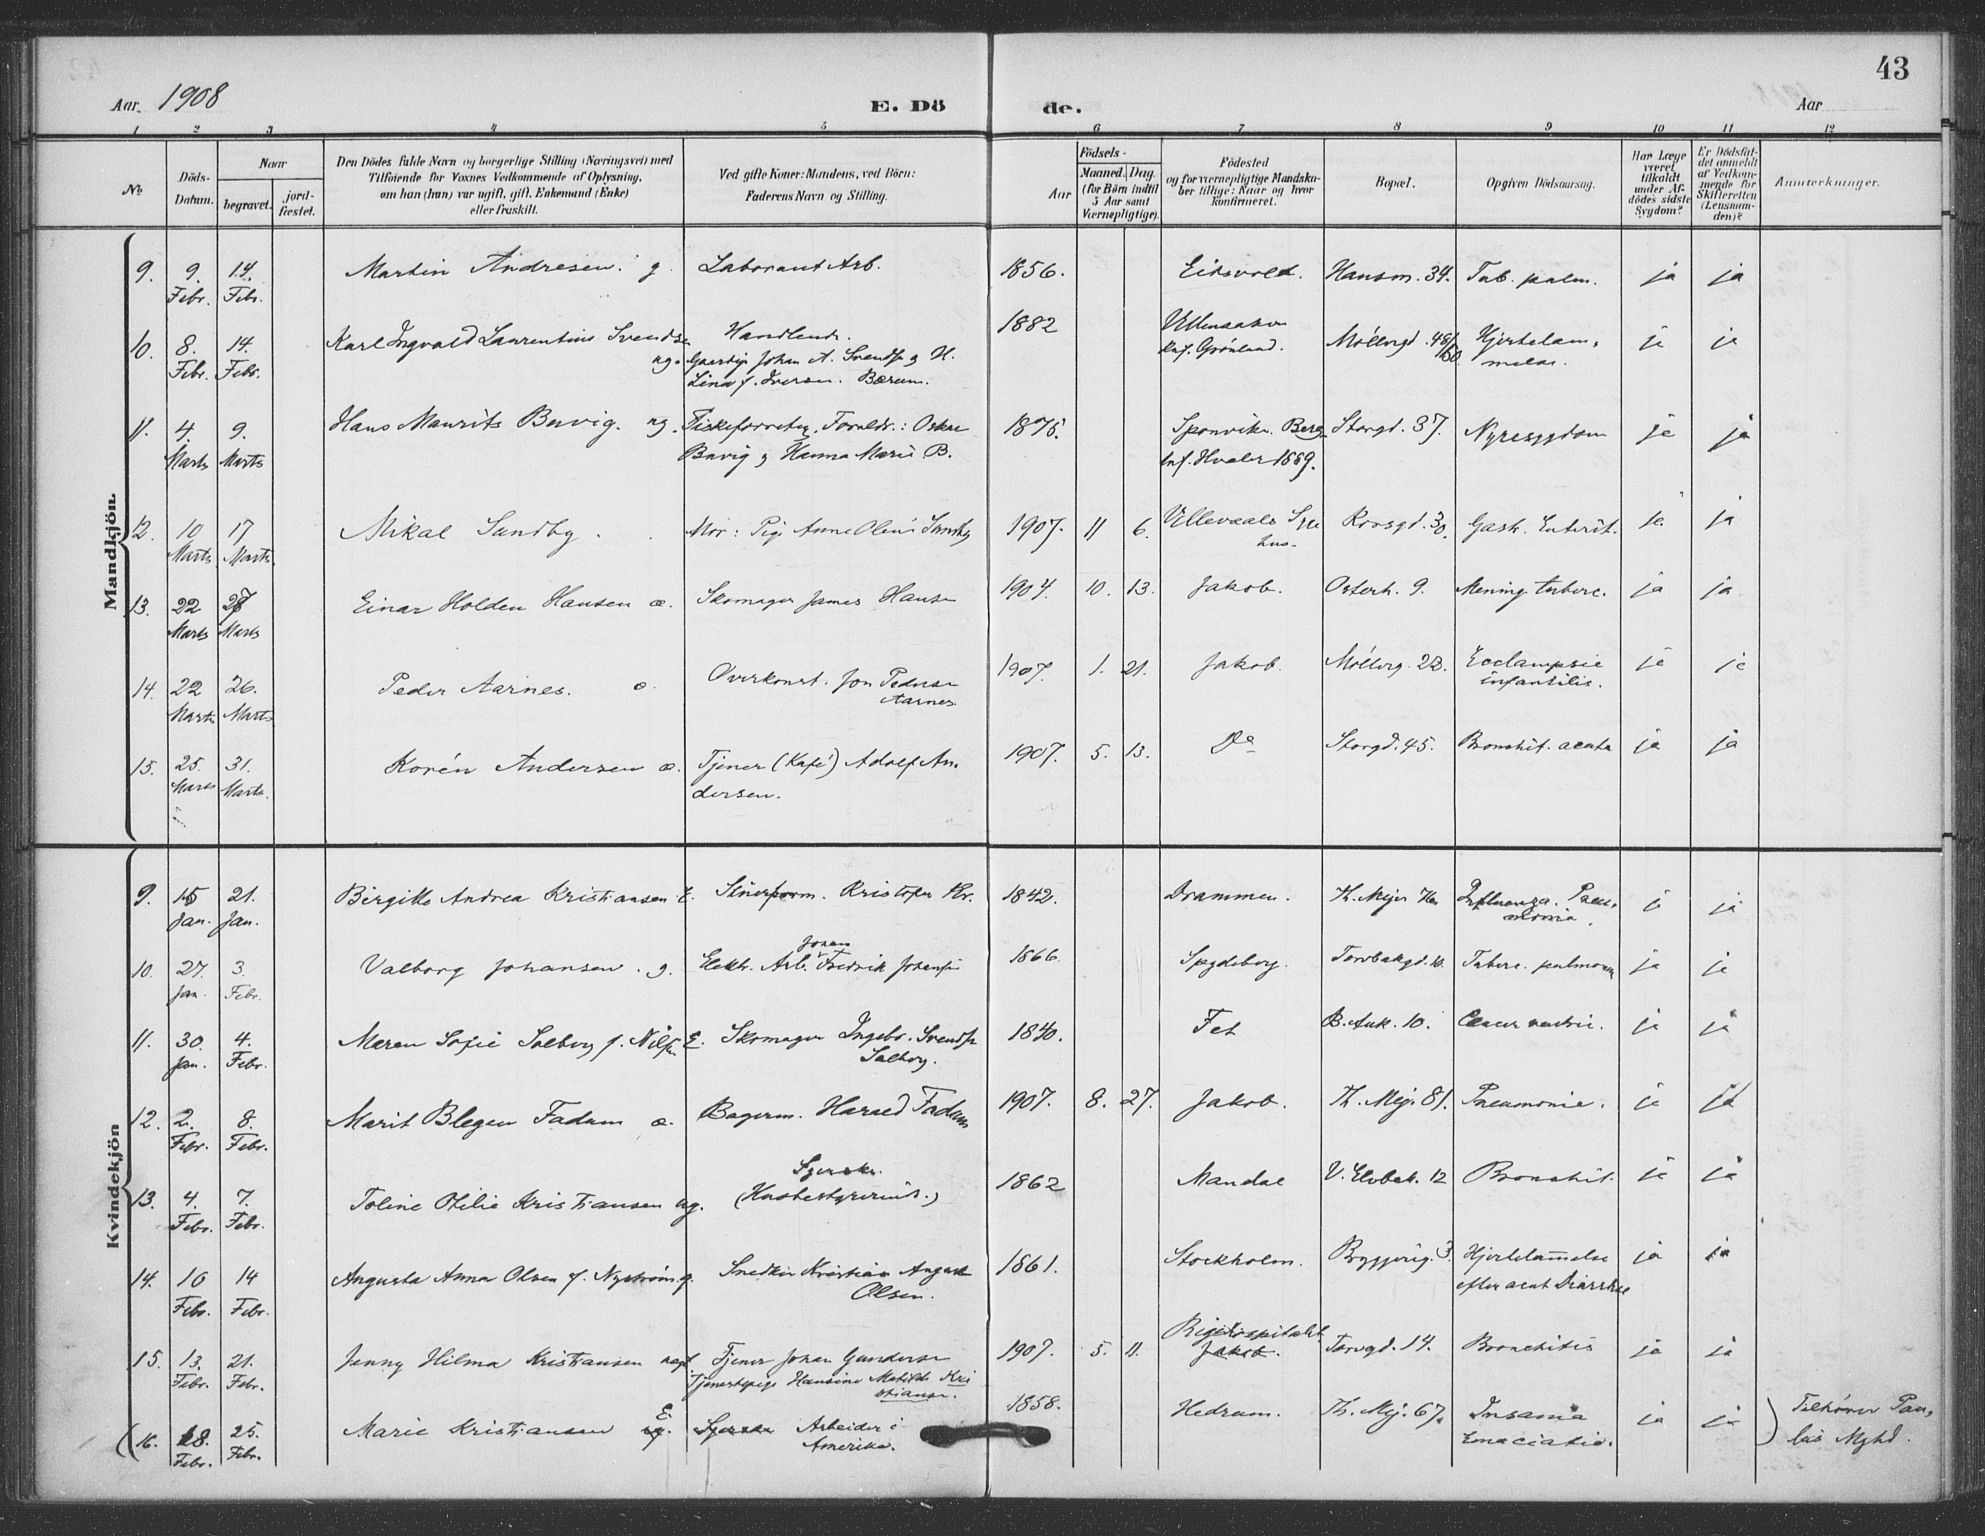 43
Aar. 1908
E. Dö
de.
Aar
1 2 3 4 5 6 7 8 9 10 11 12
No
Döds-Datum.
Naar
begravet.
jord-fæstet.
Den Dödes fulde Navn og borgerlige Stilling (Næringsvei) med
Tilföiende for Voxnes Vedkommende af Oplysning,
om han (hun) var ugift, gift, Enkemand (Enke)
eller fraskilt.
Ved gifte Koner: Mandens, ved Börn:
Faderens Navn og Stilling.
Födsels-
Aar
Maaned. Dag.
(for Börn indtil
5 Aar samt
Værnepligtige).
Födested
og for værnepligtige Mandska-
ber tillige: Naar og hvor
konfirmeret.
Bopæl.
Opgiven Dödsaarsag.
Har Læge
været
tilkaldt
under Af-
dödes sidste
Sygdom?
Er Dödsfal-
det anmeldt
af Vedkom-
mende for
Skifteretten
(Lensman-
den)?
Anmærkninger.
Mandkjön.
9. 9. Febr. 14. Febr. Martin Andresen. g. Laborant Arb. 1856. Eidsvold. Hausm. 34. Tub. pulm. ja ja
10. 8. Febr. 14. Febr. Karl Ingvald Laurentius Svendsen ug. Handlende.
Gaardbr. Johan A. Svendsen og H.
Lina f. Iversen. Bærum. 1882 Ullensaker
Knf. Grønland. Möllergd. 48/50. Hjertelam-
melse. ja ja
11. 4. Marts 9. Marts Hans Maurits Buvig. ug. Fiskeforretng. Foreldr.: Oskar
Buvig og Hanna Marie B. 1875. Sponvika. Berg
knf. Hvaler 1889. Storgd. 37. Nyresygdom ja ja
12. 10 Marts 17 Marts Mikal Sundby. Mor: Pige Anne Oleus Sundby 1907. 11 6. Ullevaals Syge
hus. Korsgd. 30. Gastr. Enterit. ja ja
13. 22 Marts 27 Marts Einar Holden Hansen æ. Skomager James Hansen 1904. 10. 13. Jakob. Osterh. 9. Mening. tuberc. ja ja
14. 22 Marts 26. Marts Peder Aarnes. æ. Overkonst. Jon Pedersen
Aarnes 1907. 1. 21. Jakob. Möllerg. 22. Ecclampsie
infantilis. ja ja
15. 25. Marts 31. Marts Korén Andersen æ. Tjener (Kafé) Adolf An-
dersen. 1907. 5. 13. Do Storgd. 45. Bronchit. acuta ja ja
Kvindekjön
9. 15 Jan. 21. Jan. Birgitte Andrea Kristiansen E. Kristofer Kr. 1842. Drammen. Th. Mejer Influenza. Pneu-
monia. ja ja
10. 27. Jan. 3. Febr. Valborg Johansen. g. Elektr. Arb. Johan Fredrik Johansen 1866. Spydeberg. Torvbakgd. 10. Tuberc. pulmonum ja ja
11. 30. Jan. 4. Febr. Maren Sofie Solberg f. Nilsen E. Skomager Ingebr. Svendsen
Solberg. 1840. Fet B. Ank. 10. Cancer ventric. ja ja
12. 2. Febr. 8. Febr. Marit Blegen Fadum æ. Bagerm. Harald Fadum 1907. 8. 27. Jakob. Th. Mej. 81. Pneumonie. ja ja
13. 4. Febr. 7. Febr. Toline Otilie Kristiansen ug. Syerske.
1862 Mandal V. Elvbak. 12 Bronchit. ja ja
14. 10 Febr. 14 Febr. Augusta Anna Olsen f. Nyström g. Snedker Kristian August
Olsen. 1861. Stockholm. Bryggerig. 3. Hjertelammelse
efter acut Diarrhee ja ja
15. 13. Febr. 21. Febr. Jenny Hilma Kristiansen uægt Tjener Johan Gundersen
Tjenestepige Hansine Matilde Kri
stiansen. 1907. 5. 11. Rigshospitalet
Jakob. Torvgd. 14. Bronchitis ja ja
16. 18. Febr. 25. Febr. Marie Kristiansen E. ug. Syerske Arbeider i
Amerika. 1858. Hedrum. Th. Mej. 67. Insania
Emaciatio. ja ja Tilhører Pau-
lus Mghd.